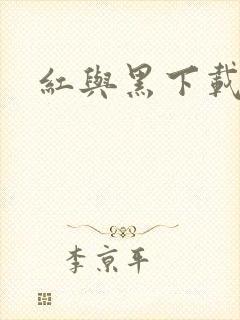 紅與黑下載
李京平